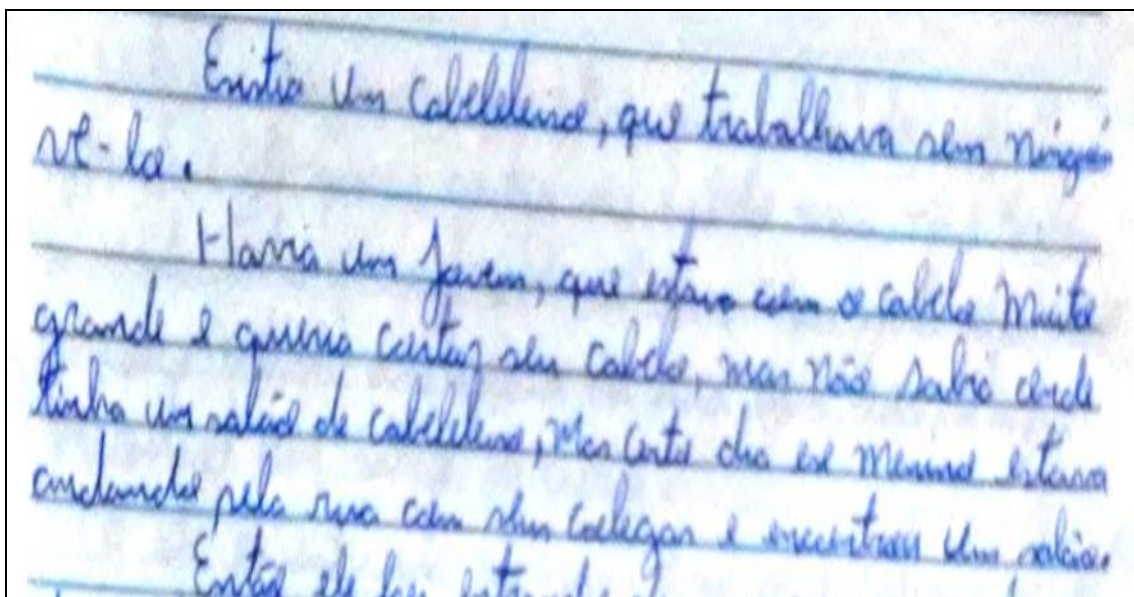 Existia um cabeleleiro, que trabalhava sem ninguém
vê-lo.
Havia um jovem, que estava com o cabelo muito
grande e queria cortar seu cabelo, mas não sabia onde
tinha um salão de cabeleleiro, mas certo dia ese menino estava
andando pela rua com seus colegas e encontrou um salão.
Então ele foi